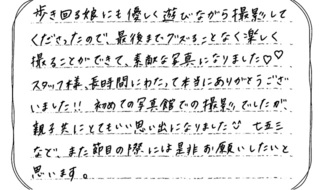 歩き回る娘にも優しく遊びながら撮影して
くださったので、最後までグズることなく楽しく
撮ることができて、素敵な写真になりました♡♡
スタッフ様、長時間にわたって本当にありがとうござ
いました!! 初めての写真館での撮影でしたが、
親子共にとてもいい思い出になりました☺ 七五三
など、また節目の際には是非お願いしたいと
思います。